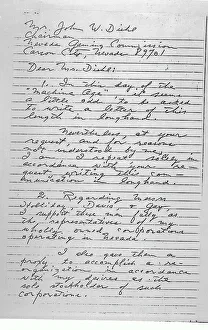 Mr. John W. Diehl
Chairman
Nevada Gaming Commission
Carson City, Nevada 89701
Dear Mr. Diehl:
1. In this day of the
"Machine Age" it seems
a little odd to be asked
to write a letter of this
length in longhand.
Nevertheless, at your
request, and for reasons
not understood by me,
I am, I repeat solely in
accordance with your re-
quest, writing this com-
munication in longhand.
Regarding Messrs
Holliday, Davis, &
I support these men fully as
the representatives of my
wholly owned corporations
operating in Nevada.
I also gave them a
proxy to accomplish a re-
organization in accordance
with my desires as the
sole stockholder of such
corporations.